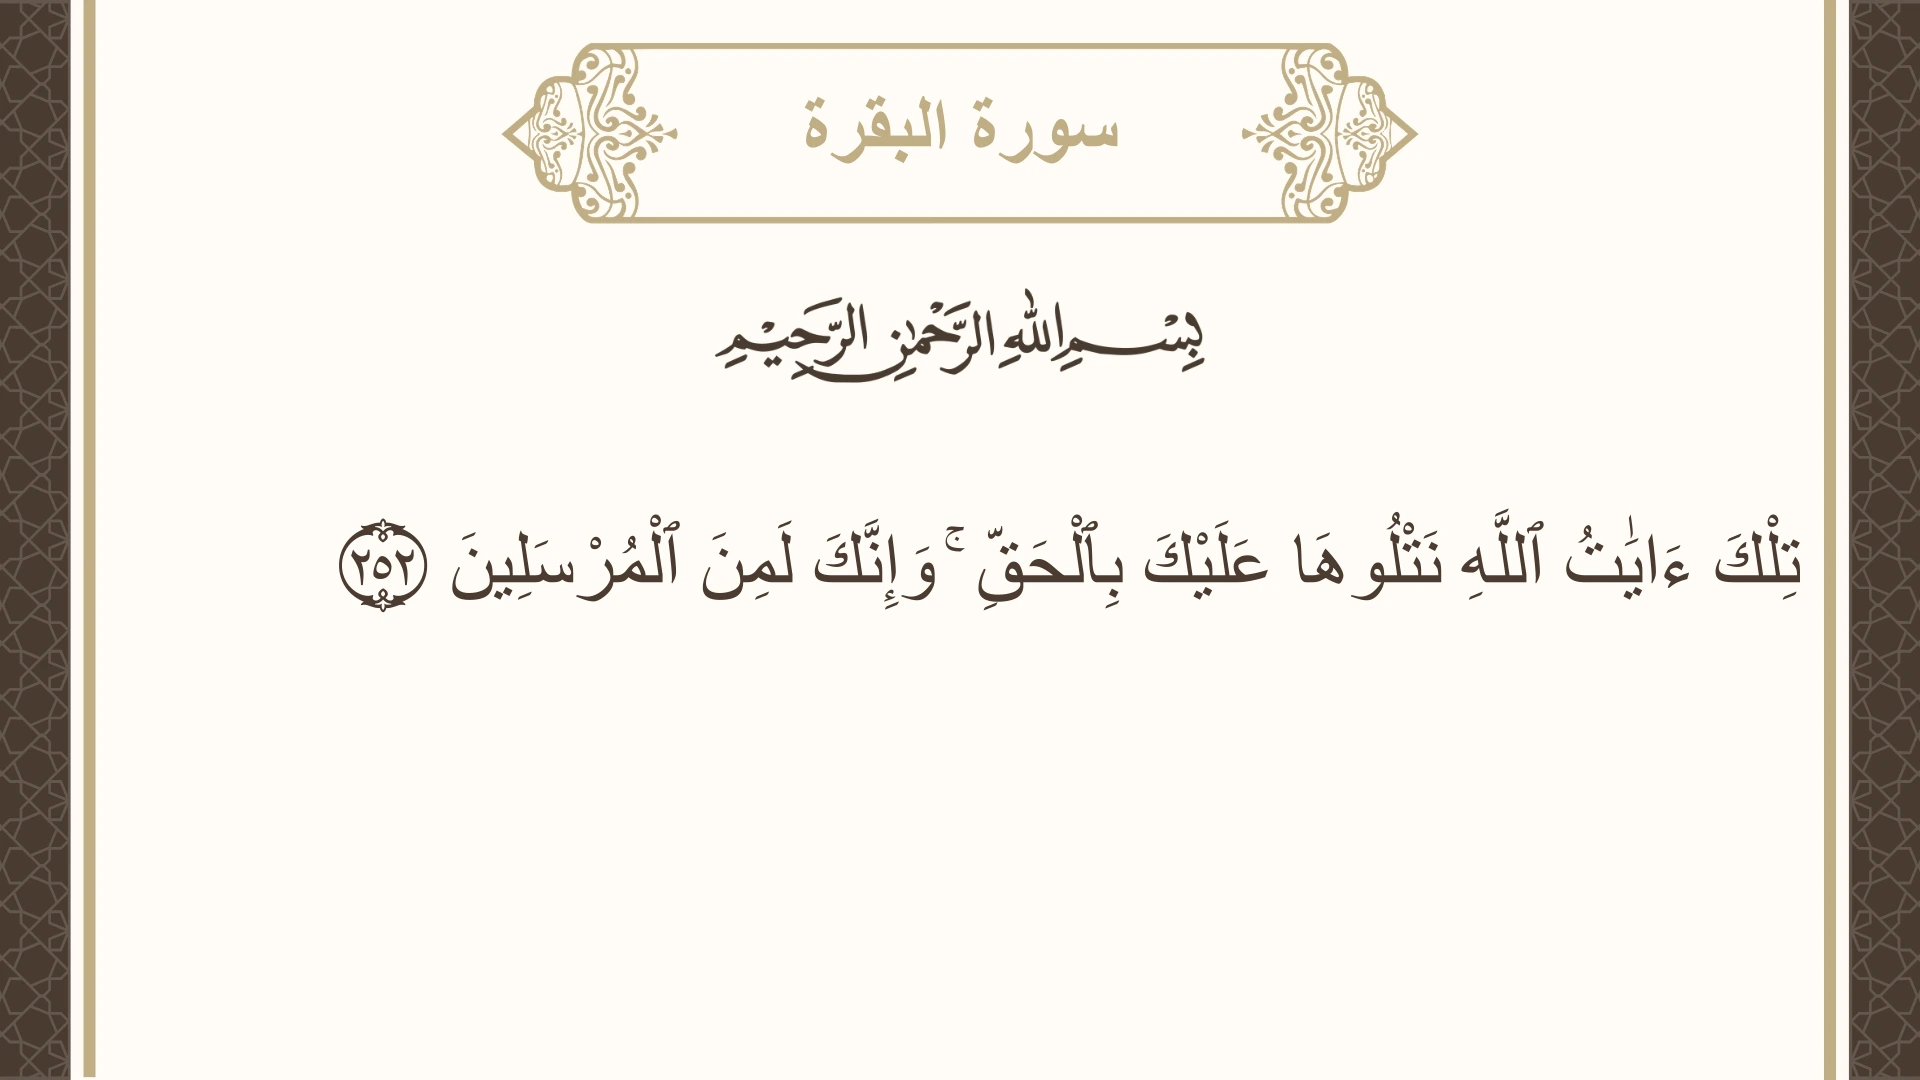 سورة البقرة
بِسْمِ اللهِ الرَّحْمٰنِ الرَّحِيْمِ
تِلْكَ ءَايَٰتُ ٱللَّهِ نَتْلُوهَا عَلَيْكَ بِٱلْحَقِّ ۚ وَإِنَّكَ لَمِنَ ٱلْمُرْسَلِينَ ٢٥٢